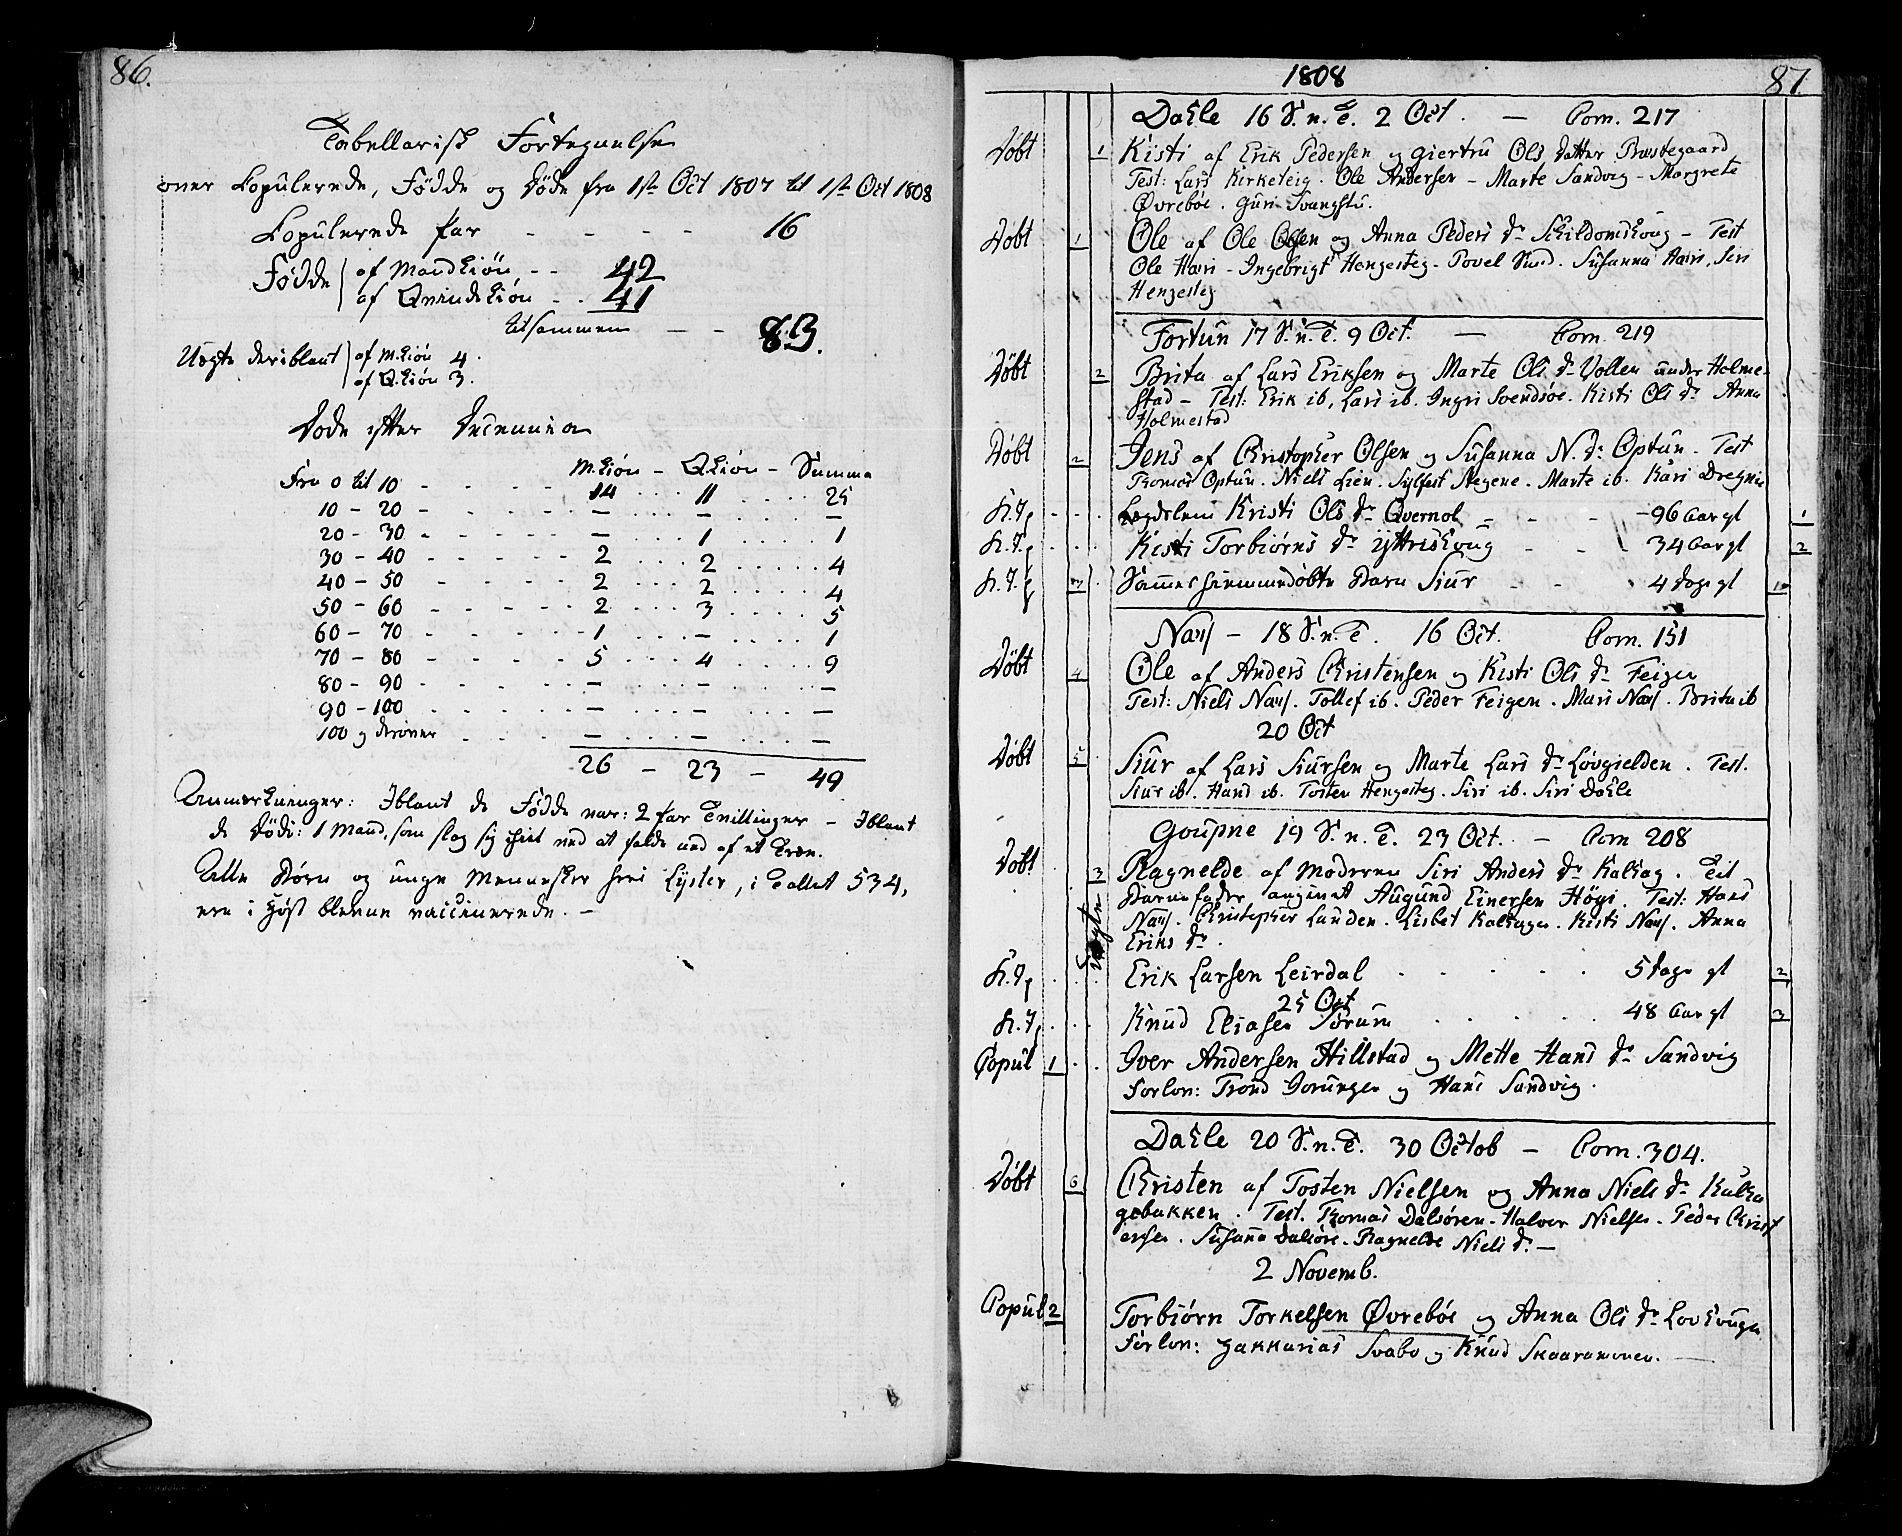 86.
Tabellarisk Fortegnelse
over Copulerede, Fødde og Døde fra 1ste Oct 1807 til 1ste Oct 1808
Copulerede Par - - - - 16
Fødde af Mandkiøn - - 42
af Qvindekiøn - - 41
tilsammen - - 83.
Uægte deriblant af M.kiøn 4.
af Q.kiøn 3.
Døde efter Decennia
M.kiøn - Q.kiøn - Summa
Fra 0 til 10 - - - - 14 ... 11 .... 25
10 - 20 - - - - - — ... — .... —
20 - 30 - - - - - — ... 1 .... 1
30 - 40 - - - - - 2 ... 2 .... 4
40 - 50 - - - - - 2 ... 2 .... 4
50 - 60 - - - - - 2 ... 3 .... 5
60 - 70 - - - - - 1 ... — .... 1
70 - 80 - - - - - 5 ... 4 .... 9
80 - 90 - - - - - — ... — .... —
90 - 100 - - - - - — ... — .... —
100 og derover - - - — ... — .... —
26 - 23 - 49
Anmerkninger: Iblant de Fødde var: 2 Par Tvillinger - Iblant
de Døde: 1 Mand, som slog sig ihiel ved at falde ned af et Træe.
Alle Børn og unge Mennesker her i Lyster, i Tallet 534,
ere i Høst blevne vaccinerede. -
1808
87.
Dahle 16 S. n. T. 2 Oct. - Com. 217
Døbt 1 Kisti af Erik Pedersen og Giertru Ols datter Præstegaard
Test: Lars Kirketeig. Ole Andersen - Marte Sandvig - Margrete
Øvrebøe. Guri
Døbt 1 Ole af Ole Olsen og Anna Peders dr Skildomskoug - Test
Ole Hari - Ingebrigt Hengesteg - Povel Sund. Susanna Hari, Siri
Hengesteg
Fortun 17 S. n. T. 9 Oct. - Com. 219
Døbt 2 Brita af Lars Eriksen og Marte Ols dr Vollen under Holme-
stad - Test: Erik ib, Lars ib. Ingri Svendsøe. Kisti Ols dr Anna
Holmestad
Døbt 2 Jens af Christopher Olsen og Susanna N. dr Optun. Test
Thomas Optun. Niels Lien. Sylfest Stegene. Marte ib. Kari Dregnie
K. J. Lægdslem Kristi Ols dr Qvernol - - - 96 Aar gl 1
K. J. Kisti Torbiørns dr Ytriskoug - - 34 Aar gl 2
K. J. Sammes hiemmedøbte Barn Siur - - 4 dage gl
Næss - 18 S. n. T. 16 Oct. Com. 151
Døbt 4 Ole af Anders Christensen og Kisti Ols dr Feigen
Test: Niels Næss. Tollef ib. Peder Feigen. Mari Næss. Brita ib
20 Oct
Døbt 5 Siur af Lars Siursen og Marte Lars dr Løvgielden. Test.
Siur ib. Hans ib. Tosten Hengesteg. Siri ib. Siri Dahle
Goupne 19 S. n. T. 23 Oct. - Com 208
Døbt 3 Ragnelde af Moderen Siri Anders dr Kalhag. Til
uægte
Barnefader angivet Augund Einersen Høgi. Test: Hans
Næss. Christopher Lunden. Lisbet Kalhagen. Kisti Næss. Anna
Eriks dr.
K. J. Erik Larsen Leirdal . . . . 5 dage gl 2
25 Oct
K. J. Knud Eliasen Sorum . . . . 48 Aar gl 3
Copul 1 Iver Andersen Hillstad og Mette Hans dr Sandvig
Forlov: Trond Joranger og Hans Sandvig.
Dahle 20 S. n. T. 30 Octob - Com. 304.
Døbt 6 Christen af Tosten Nielsen og Anna Niels dr Kalha
gebakken. Test. Thomas Dalsøren - Halvor Nielsen. Peder Christ
ensen. Susanna Dalsøre. Ragnelde Niels dr. -
2 Novemb.
Copul 2 Torbiørn Torkelsen Øvrebøe og Anna Ols dr Lovhougen
Forlov: Zakkarias Svabo og Knud Skaaramoen.